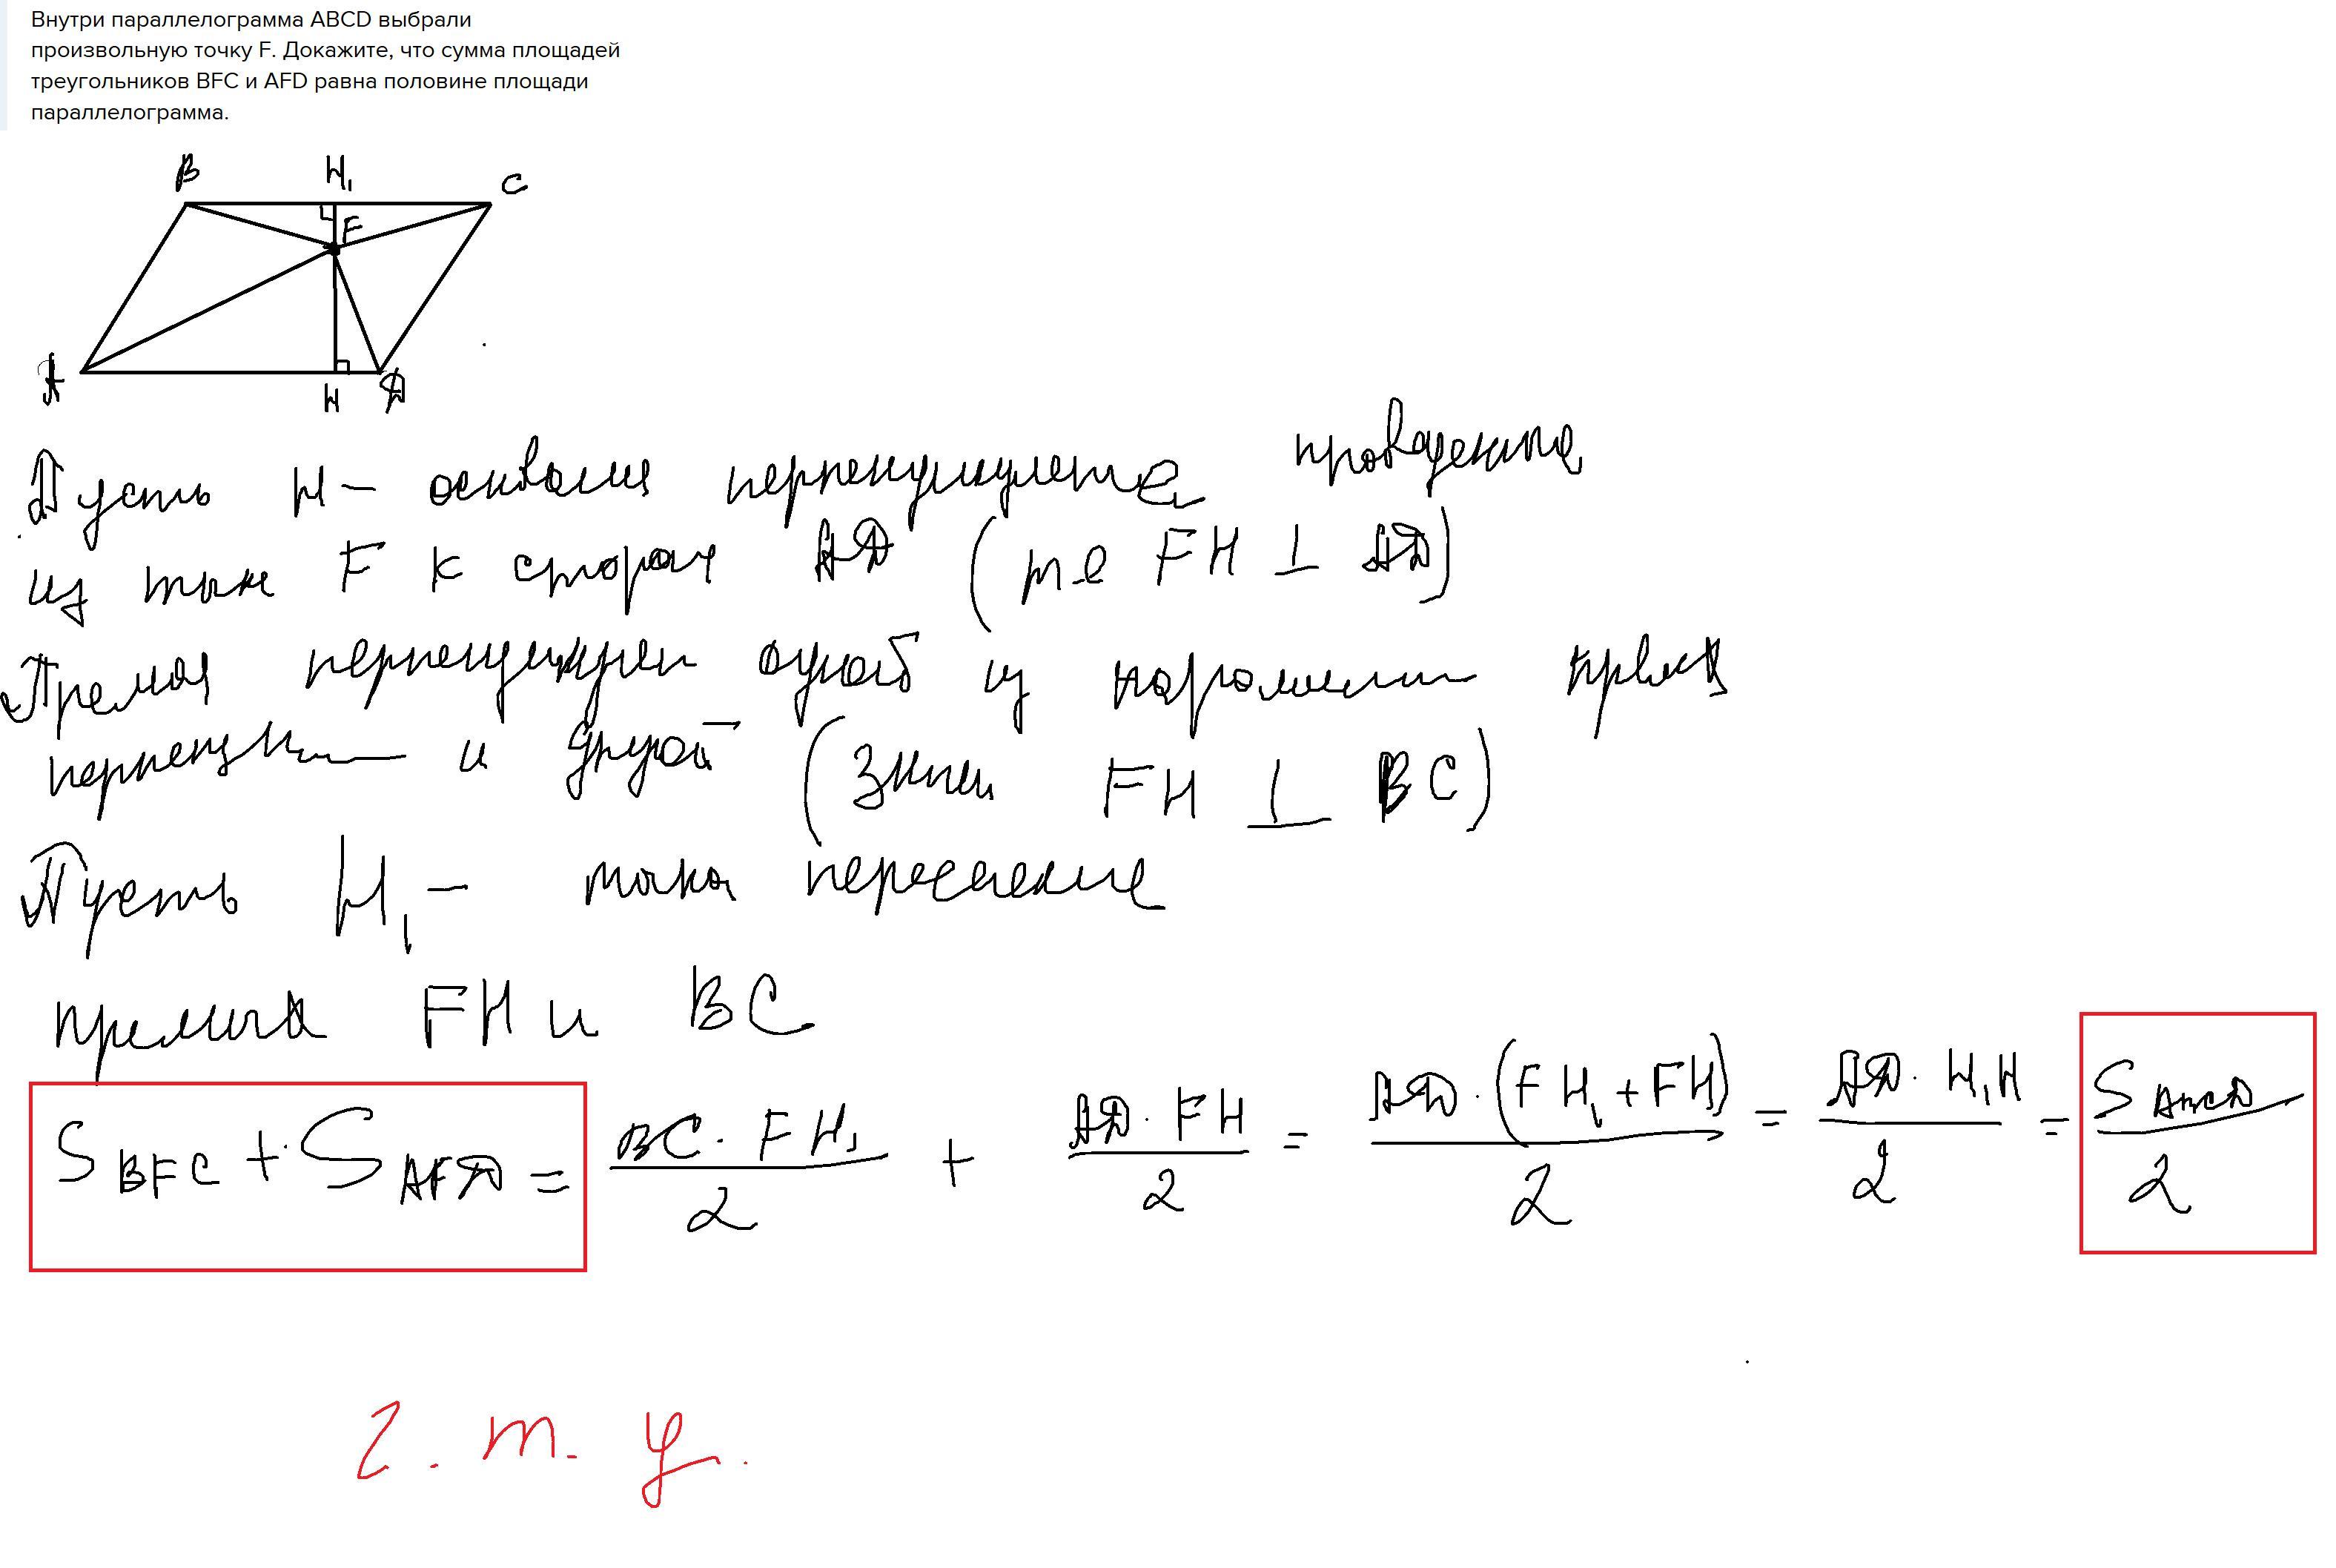 Внутри параллелограмма ABCD выбрали
произвольную точку F. Докажите, что сумма площадей
треугольников BFC и AFD равна половине площади
параллелограмма.
B H₁ C
F
A H D
Пусть H – основания перпендикуляра проведенного
из точки F к стороне AD (т.е FH ⊥ AD)
Прямая перпендикулярн одной из параллельн прямых
перпендик и другой (Значит FH ⊥ BC)
Пусть H₁ – точка пересечения
прямых FH и BC
S BFC + S AFD = BC · FH₁ / 2 + AD · FH / 2 = AD · (FH₁ + FH) / 2 = AD · H₁H / 2 = S ABCD / 2
Ч. т. д.